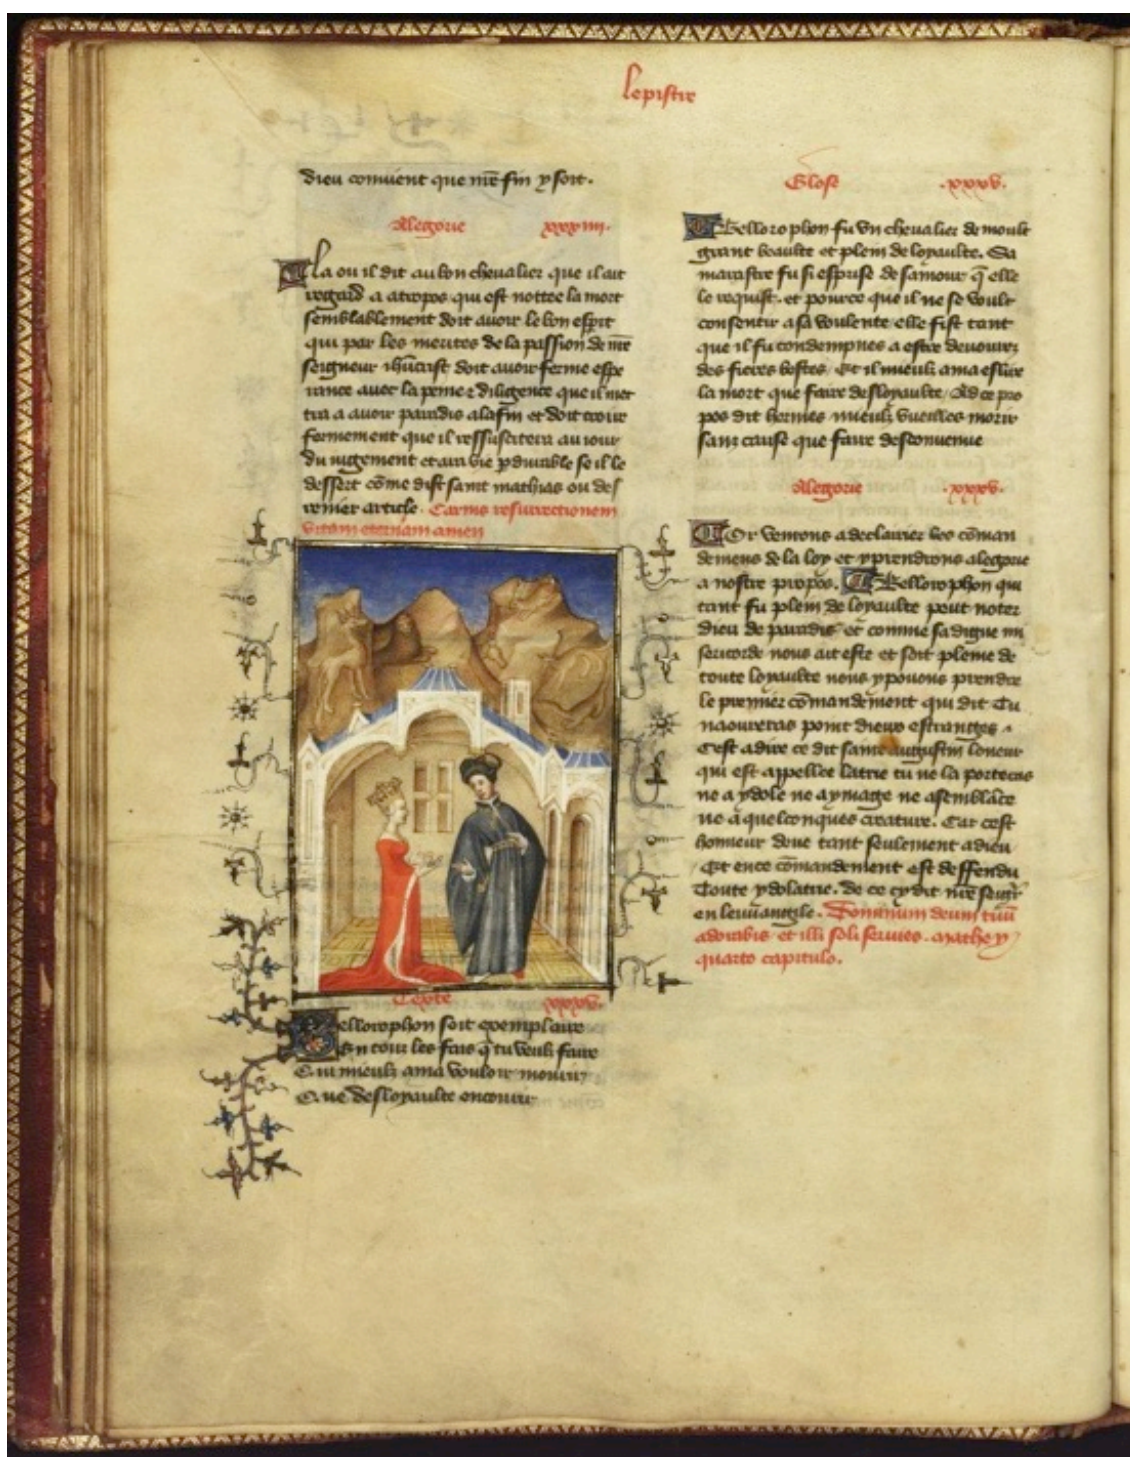 Lepistre
dieu convient que nre fin y soit.
Alegorie xxxiiii.
La ou il dit au bon chevalier que il ait
regard a atropos qui est nottee la mort
semblablement doit avoir le bon esprit
qui par les merites de la passion de nre
seigneur ihucrist doit avoir ferme espe
rance avec la peine et diligence que il met
tra a avoir paradis a la fin et doit croire
fermement que il resuscitera au jour
du jugement et ara vie pdurable se il le
dessert come dist saint mathias ou der
renier article. Carnis resurrectionem
vitam eternam amen
Texte xxxv.
Bellorophon soit exemplaire
En tour les fais q tu veulz faire
Qui mieulz ama vouloir mourir
Que desloyaulte encourir
Glose .xxxv.
Bellorophon fu un chevalier de moult
grant beaulte et plein de loyaulte. Sa
marastre fu si esprise de samour q elle
le requist. et pource que il ne se voult
consentir a sa voulente elle fist tant
que il fu condempnes a estre devourez
des fieres bestes. Et il mieulz ama eslire
la mort que faire desloyaulte. Ad ce pro
pos dit hermes mieulz vueilles morir
sanz cause que faire desconvenue
Alegorie .xxxv.
Or venons a declairier les coman
demens de la loy et y prendrons alegorie
a nostre propos. Bellorophon qui
tant fu plein de loyaulte peut noter
dieu de paradis et comme sa digne mi
sericorde nous ait este et soit pleine de
toute loyaulte nous y pouons prendre
le premier comandement qui dit Tu
naoureras point dieux estranges.
Cest a dire ce dit saint augustin loneur
qui est appellee latrie tu ne la porteras
ne a ydole ne a ymage ne a semblace
ne a quelconques creature. Car cest
honneur deue tant seulement a dieu
Et en ce comandement est deffendu
Toute ydolatrie. de ce cy dit nre seigr
en leuvangile. Dominum deum tuu
adorabis et illi soli servies. mathey
quarto capitulo.